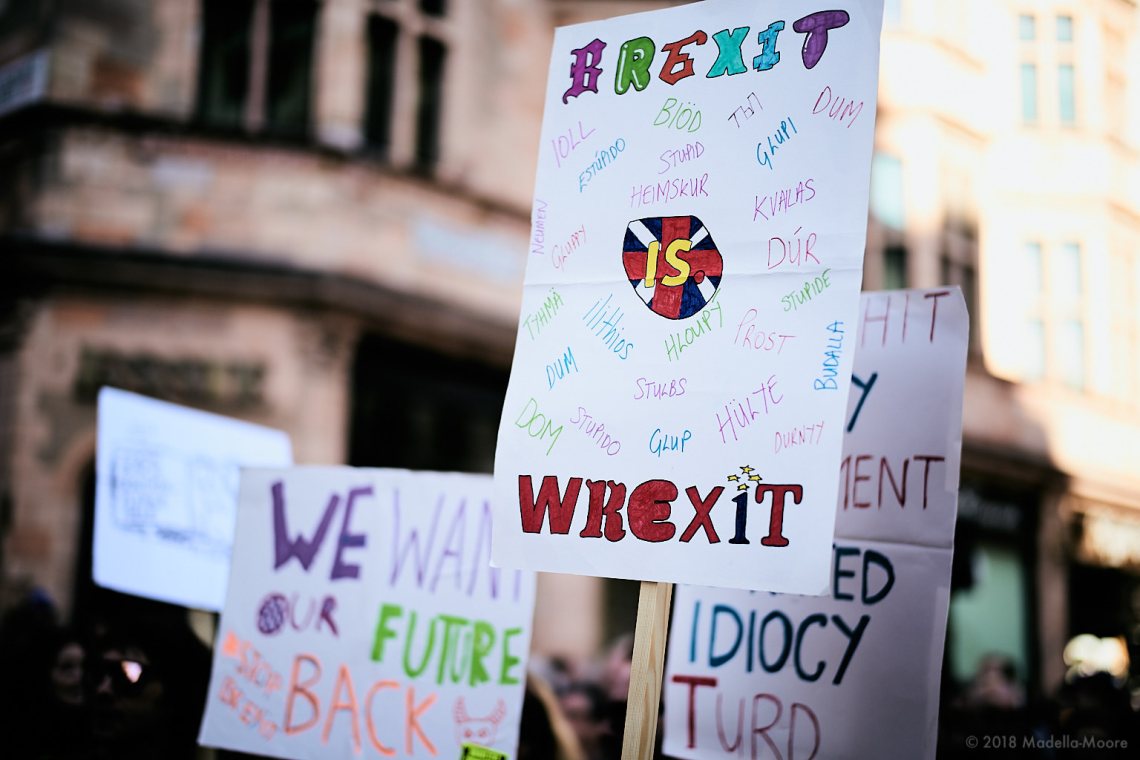 BREXIT
BIÖD
DUM
LOLL
ESTÚPIDO
STUPID
GLUPI
HEIMSKUR
KVAILAS
NEUMEN
GLUPPY
DÚR
IS.
STUPIDE
TYHMÄ
ilithios
HLOUPÝ
PROST
BUDALLA
DUM
STULBS
DOM
STUPIDO
GLUP
HÜLTE
DURNYY
WREXIT
WE WANT
OUR FUTURE
BACK
HIT
Y
MENT
ED
IDIOCY
TURD
© 2018 Madella-Moore